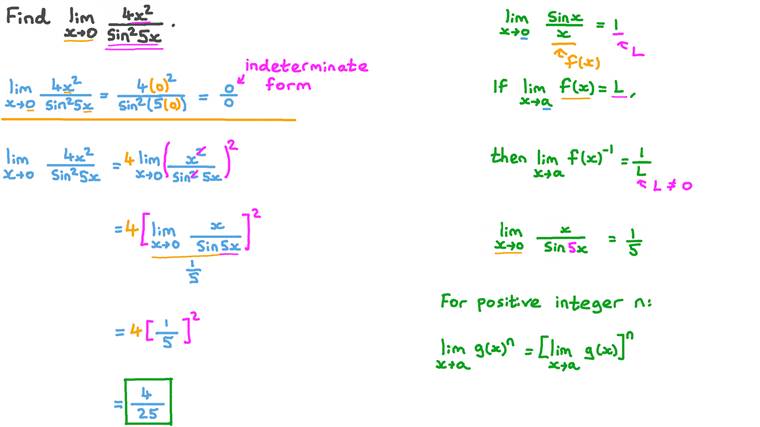 Find lim x→0 4x²/sin²5x.
lim x→0 4x²/sin²5x = 4(0)²/sin²(5(0)) = 0/0
indeterminate
form
lim x→0 4x²/sin²5x = 4 lim x→0 (x²/sin²5x)²
= 4[lim x→0 x/sin5x]²
1/5
= 4[1/5]²
= 4/25
lim x→0 sinx/x = 1
L
f(x)
If lim x→a f(x) = L,
then lim x→a f(x)⁻¹ = 1/L
L ≠ 0
lim x→0 x/sin5x = 1/5
For positive integer n:
lim x→a g(x)ⁿ = [lim x→a g(x)]ⁿ